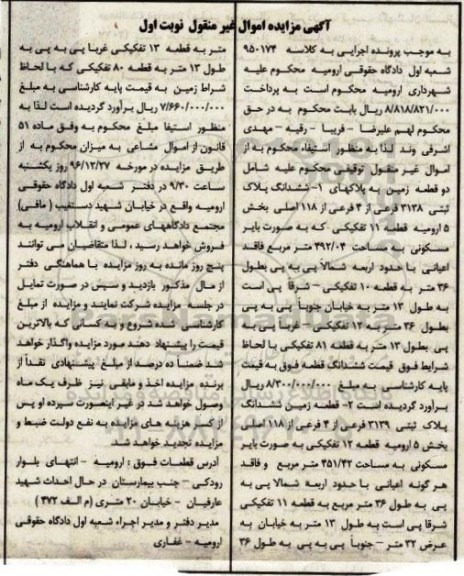 آگهی مزایده اموال غیر منقول نوبت اول
به موجب پرونده اجرایی به کلاسه ۹۵۰۱۷۴
شعبه اول دادگاه حقوقی ارومیه محکوم علیه
شهرداری ارومیه محکوم است به پرداخت
۸/۸۱۸/۸۲۱/۰۰۰ ریال بابت محکوم به در حق
محکوم لهم علیرضا - فریبا - رقیه - مهدی
اشرفی وند لذا به منظور استیفاء محکوم به از
اموال غیر منقول توقیفی محکوم علیه شامل
دو قطعه زمین به پلاکهای ۱- ششدانگ پلاک
ثبتی ۳۱۳۸ فرعی از ۴ فرعی از ۱۱۸ اصلی بخش
۵ ارومیه قطعه ۱۱ تفکیکی که به صورت بایر
مسکونی به مساحت ۴۹۲/۰۴ متر مربع فاقد
اعیانی با حدود اربعه شمالاً پی به پی بطول
۳۶ متر به قطعه ۱۰ تفکیکی - شرقاً پی است
به طول ۱۳ متر به خیابان جنوباً پی به پی
بطول ۳۶ متر به ۱۲ تفکیکی - غرباً پی به
پی بطول ۱۳ متر به قطعه ۸۱ تفکیکی با لحاظ
شرایط فوق قیمت ششدانگ قطعه فوق به قیمت
پایه کارشناسی به مبلغ ۸/۳۰۰/۰۰۰/۰۰۰ ریال
برآورد گردیده است ۲- قطعه زمین ششدانگ
پلاک ثبتی ۳۱۳۹ فرعی از ۴ فرعی از ۱۱۸ اصلی
بخش ۵ ارومیه قطعه ۱۲ تفکیکی به صورت بایر
مسکونی به مساحت ۴۵۱/۴۲ متر مربع و فاقد
هر گونه اعیانی با حدود اربعه شمالا پی به
پی به طول ۳۶ متر مربع به قطعه ۱۱ تفکیکی
شرقا پی است به طول ۱۳ متر به خیابان به
عرض ۳۲ متر - جنوباً پی به پی به طول ۳۶
متر به قطعه ۱۳ تفکیکی غربا پی به پی به
طول ۱۳ متر به قطعه ۸۰ تفکیکی که با لحاظ
شرایط زمین به قیمت پایه کارشناسی به مبلغ
۷/۶۶۰/۰۰۰/۰۰۰ ریال برآورد گردیده است لذا به
منظور استیفا مبلغ محکوم به وفق ماده ۵۱
قانون از اموال مشاعی به میزان محکوم به از
طریق مزایده در مورخه ۹۶/۱۲/۲۷ روز یکشنبه
ساعت ۹/۳۰ در دفتر شعبه اول دادگاه حقوقی
ارومیه واقع در خیابان شهید دستغیب (مافی)
مجتمع دادگاههای عمومی و انقلاب ارومیه به
فروش خواهد رسید، لذا متقاضیان می توانند
پنج روز مانده به روز مزایده با هماهنگی دفتر
از حال مذکور بازدید و سپس در صورت تمایل
در جلسه مزایده شرکت نمایند و مزایده از مبلغ
کارشناسی شده شروع و به کسانی که بالاترین
قیمت را پیشنهاد دهند مورد مزایده واگذار خواهد
شد ضمناً ده درصد از مبلغ پیشنهادی نقداً از
برنده مزایده اخذ و مابقی نیز ظرف یک ماه
وصول خواهد شد در غیر اینصورت سپرده او پس
از کسر هزینه های مزایده به نفع دولت ضبط و
مزایده تجدید خواهد شد.
آدرس قطعات فوق: ارومیه - انتهای بلوار
رودکی - جنب بیمارستان در حال احداث شهید
عارفیان - خیابان ۲۰ متری (م الف ۴۷۲)
مدیر دفتر و مدیر اجراء شعبه اول دادگاه حقوقی
ارومیه - غفاری